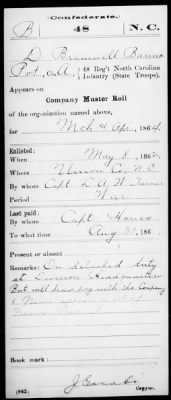 Confederate.
B 48 N. C.
D. Bramwell
Pvt., Co. A, 48 Reg't North Carolina
Infantry (State Troops).
Appears on
Company Muster Roll
of the organization named above,
for Mch & Apr, 1864.
Enlisted:
When May 8, 1862.
Where Union Co. N.C.
By whom Capt.
Period War
Last paid:
By whom Capt.
To what time Aug 31, 186
Present or absent
Remarks: On detached duty
at Division Headquarters
But will draw pay with the Company
Book mark:
Copyist.
(642)